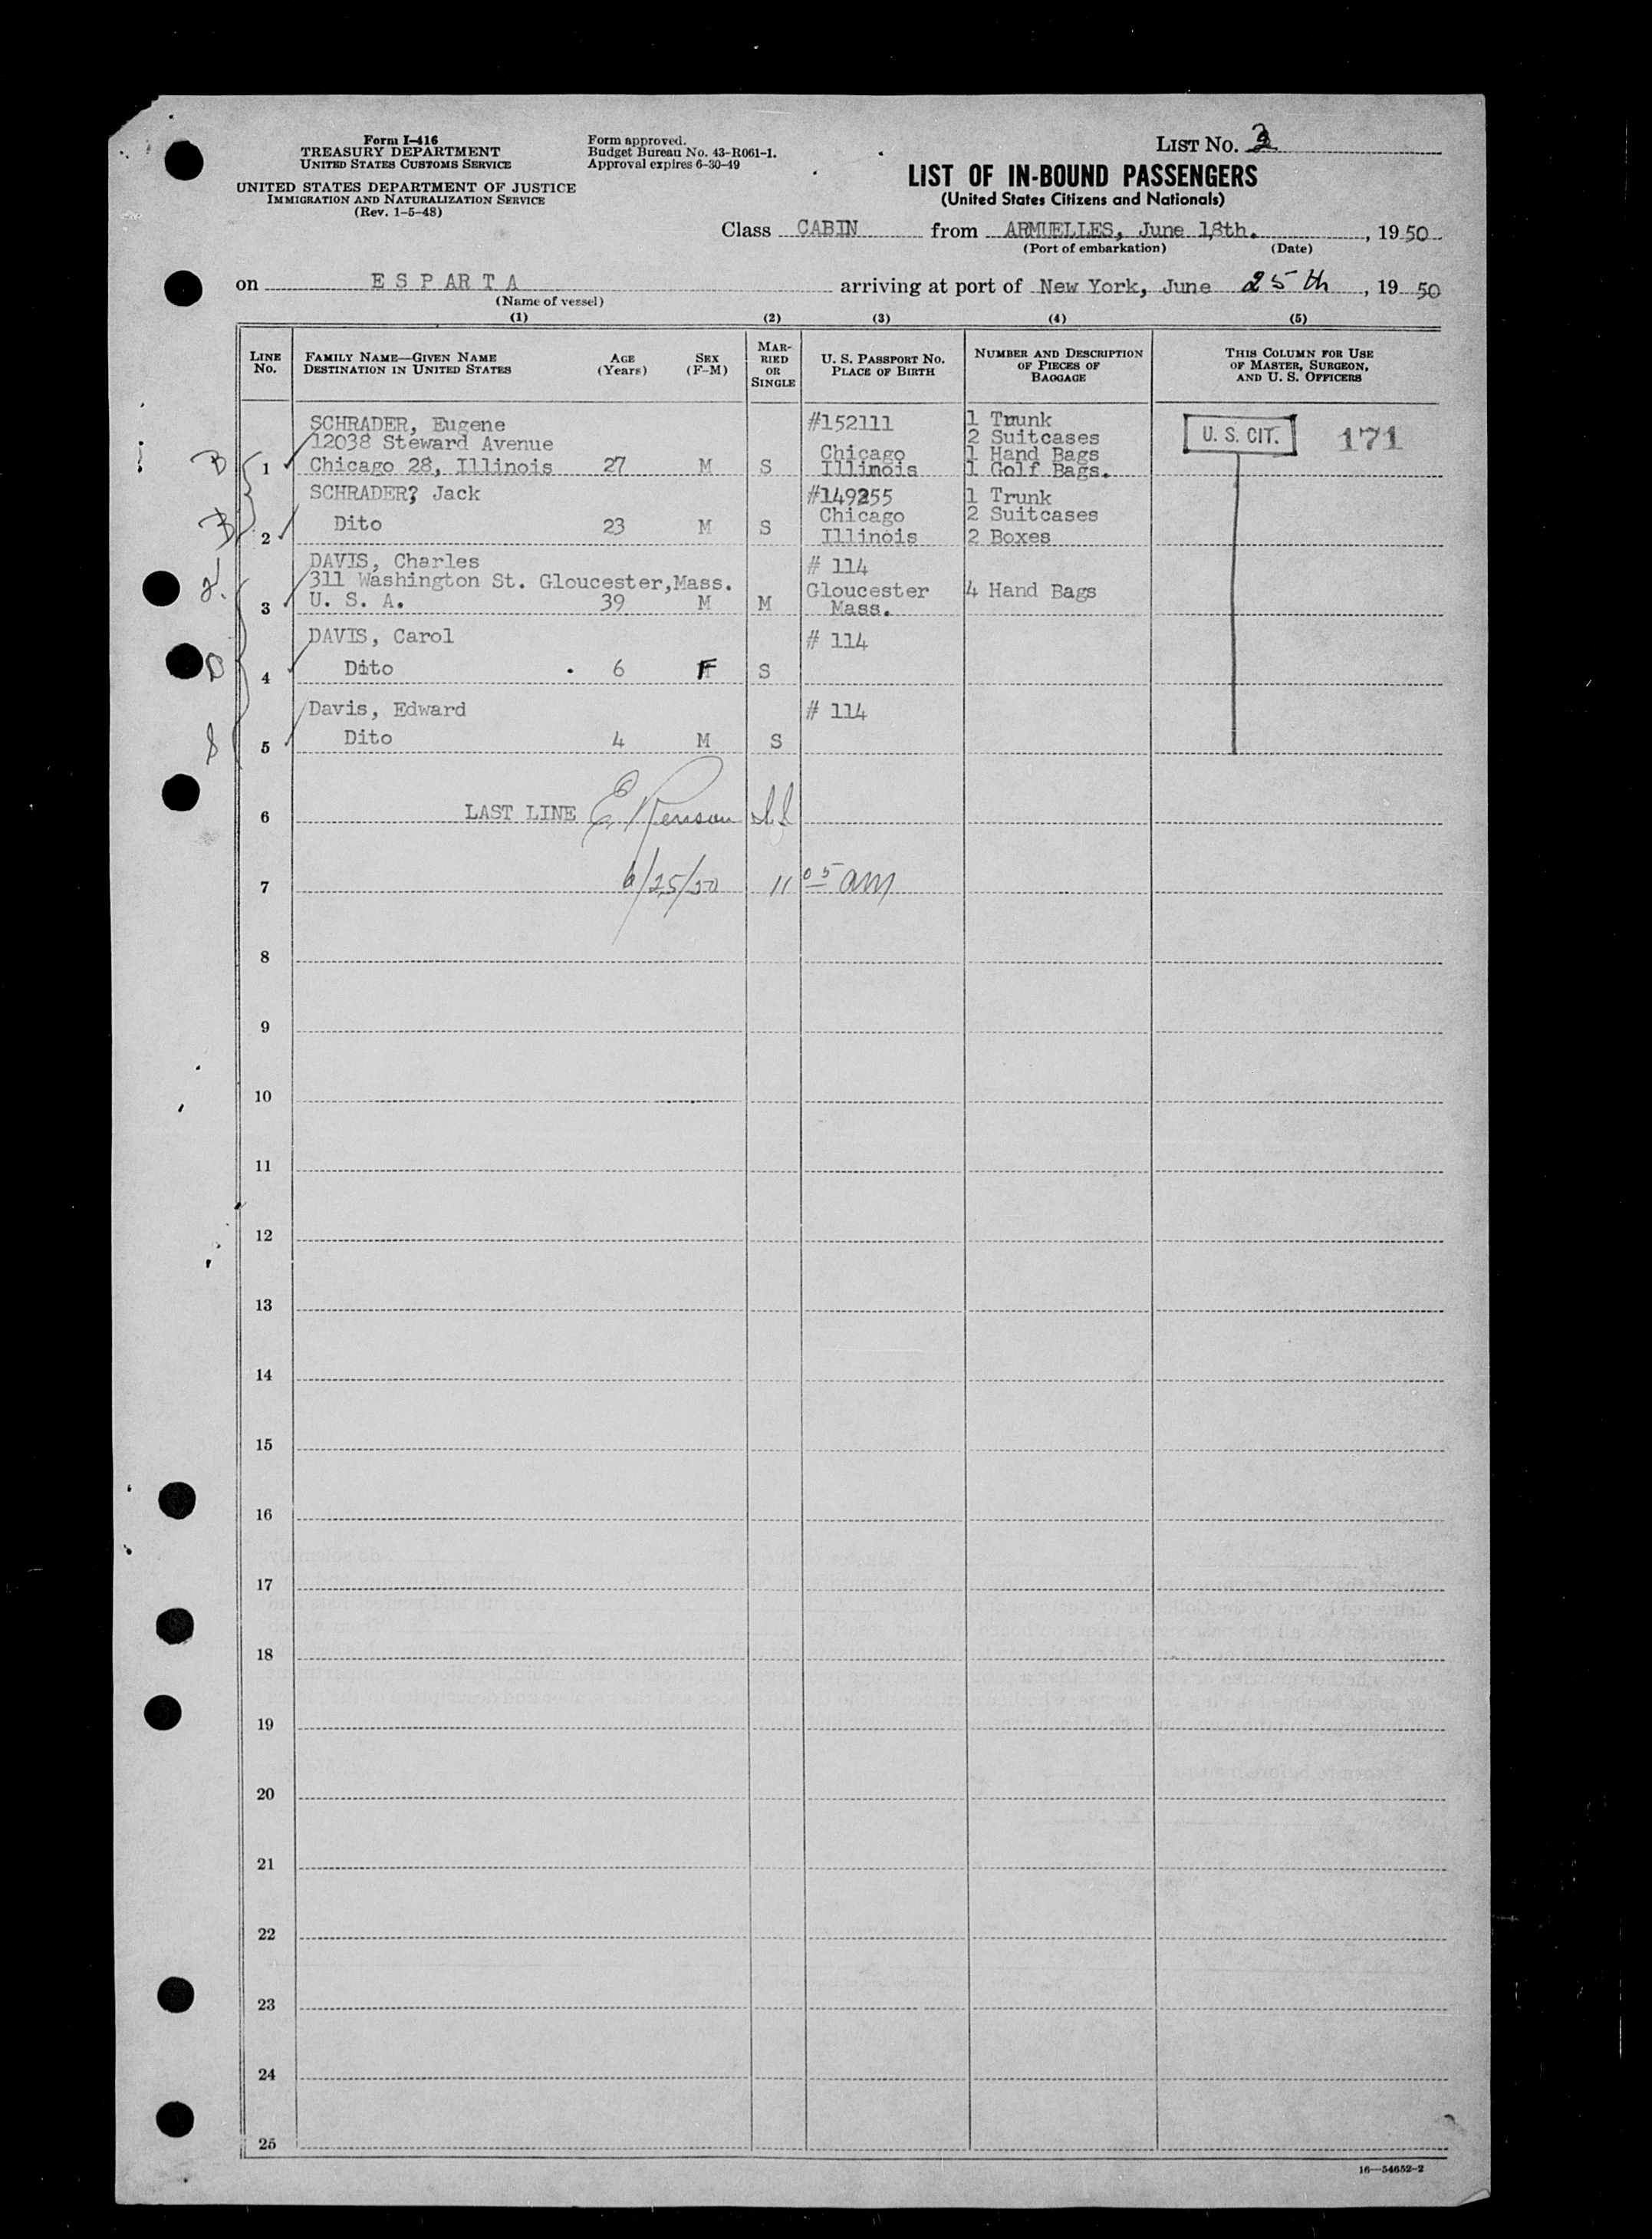 Form I-416
TREASURY DEPARTMENT
UNITED STATES CUSTOMS SERVICE
UNITED STATES DEPARTMENT OF JUSTICE
IMMIGRATION AND NATURALIZATION SERVICE
(Rev. 1-5-48)
Form approved.
Budget Bureau No. 43-R061-1.
Approval expires 6-30-49
LIST No.
LIST OF IN-BOUND PASSENGERS
(United States Citizens and Nationals)
Class CABIN from ARMUELLES, June 18th., 1950
(Port of embarkation) (Date)
on E S P A R T A arriving at port of New York, June 25th, 1950
(Name of vessel)
(1) (2) (3) (4) (5)
LINE No. FAMILY NAME—GIVEN NAME DESTINATION IN UNITED STATES AGE (Years) SEX (F-M) MARRIED OR SINGLE U. S. PASSPORT NO. PLACE OF BIRTH NUMBER AND DESCRIPTION OF PIECES OF BAGGAGE THIS COLUMN FOR USE OF MASTER, SURGEON, AND U. S. OFFICERS
SCHRADER, Eugene #152111 1 Trunk U. S. CIT. 171
12038 Steward Avenue 2 Suitcases
B 1 Chicago 28, Illinois 27 M S Chicago Illinois 1 Hand Bags 1 Golf Bags.
SCHRADER? Jack #149255 1 Trunk
B 2 Dito 23 M S Chicago Illinois 2 Suitcases 2 Boxes
DAVIS, Charles # 114
311 Washington St. Gloucester,Mass. Gloucester 4 Hand Bags
3 U. S. A. 39 M M Mass.
DAVIS, Carol # 114
D 4 Dito 6 F S
Davis, Edward # 114
5 Dito 4 M S
6 LAST LINE
7 6/25/50 11 05 am
8
9
10
11
12
13
14
15
16
17
18
19
20
21
22
23
24
25
16—54652-2